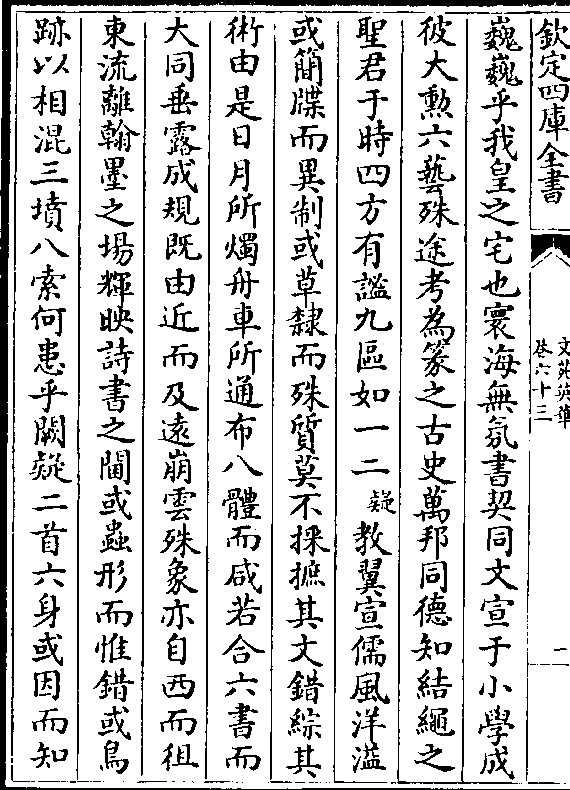 欽定四庫全書
文苑英華
卷六十三
一
巍巍乎我皇之宅也寰海無氛書契同文宣于小學成
彼大勲六藝殊途考為篆之古史萬邦同德知結繩之
聖君于時四方有謐九區如一二疑教翼宣儒風洋溢
或簡牒而異制或草隸而殊質莫不採摭其文錯綜其
術由是日月所燭舟車所通布八體而咸若合六書而
大同垂露成規既由近而及遠崩雲殊象亦自西而徂
東流離翰墨之場輝映詩書之閫或蟲形而惟錯或鳥
跡以相混三墳八索何患乎闕疑二首六身或因而知